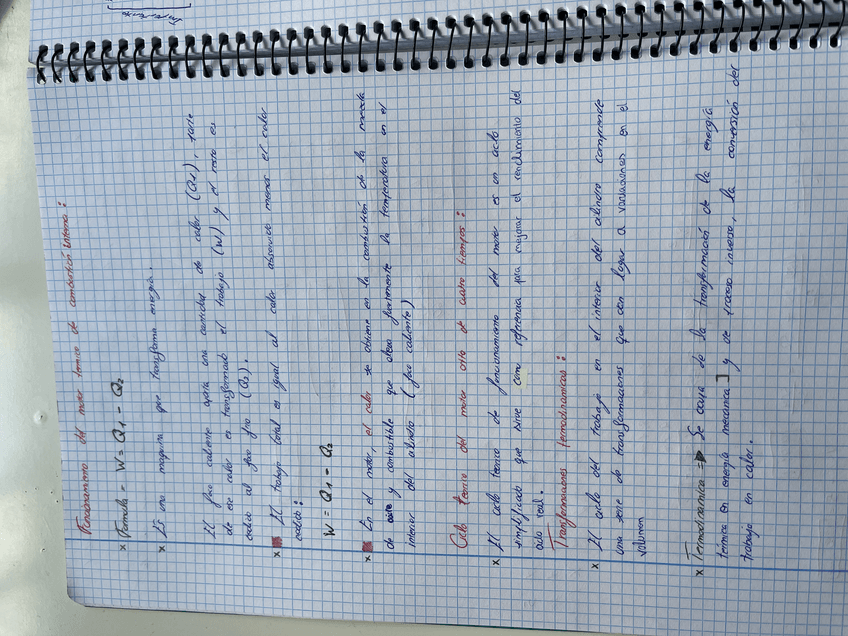 Funcionamiento del motor termico de combustión interna:
x Formula - W = Q1 - Q2
x Es una maquina que transforma energía.
El foco caliente aporta una cantidad de calor (Q1), parte
de ese calor es transformado el trabajo (W) y el resto es
cedido al foco frio (Q2).
x El trabajo total es igual al calor absorvido menos el calor
cedido:
W = Q1 - Q2
x En el motor, el calor se obtiene en la combustión de la mezcla
de aire y combustible que eleva fuertemente la temperatura en el
interior del cilindro (foco caliente)
Ciclo termico del motor otto de cuatro tiempos:
x El ciclo termico de funcionamiento del motor es un ciclo
simplificado que sirve como referencia para mejorar el rendimiento del
ciclo real.
Transformaciones termodinamicas:
x El ciclo del trabajo en el interior del cilindro comprende
una serie de transformaciones que dan lugar a variaciones en el
volumen
x Termodinamica => Se ocupa de la transformación de la energía
termica en energía mecanica] y de proceso inverso, la conversión del
trabajo en calor.